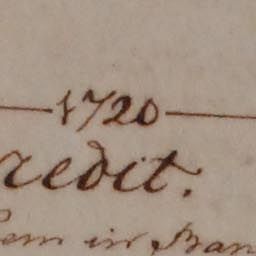 1720
redit.
em in Ban